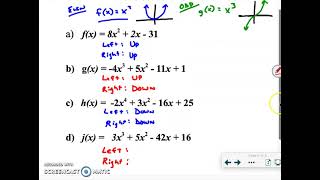 EVEN f(x) = x² ODD g(x) = x³
a) f(x) = 8x² + 2x - 31
Left : Up
Right : Up
b) g(x) = -4x³ + 5x² - 11x + 1
Left : Up
Right : Down
c) h(x) = -2x⁴ + 3x² - 16x + 25
Left : Down
Right : Down
d) j(x) = 3x³ + 5x² - 42x + 16
Left :
Right :
RECORDED WITH
SCREENCAST MATIC